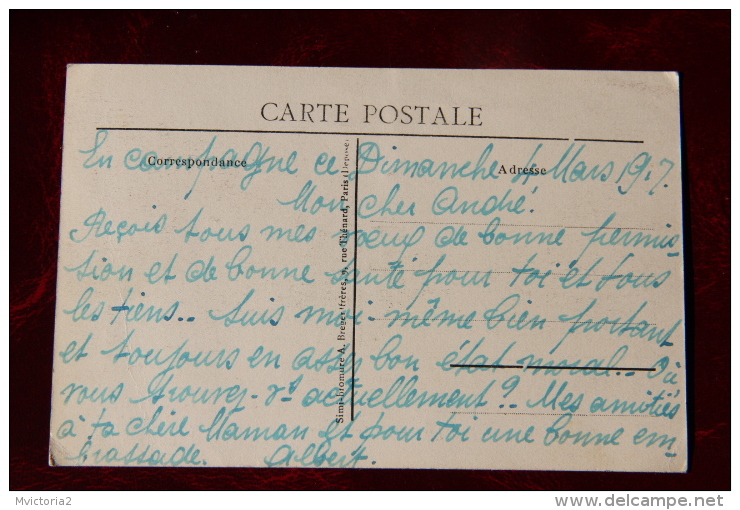 CARTE POSTALE
Correspondance
Adresse
Simi-bromure A. Breger frères, 9, rue Thénard, Paris (Déposé)
En campagne ce Dimanche 4 Mars 1917.
Mon cher André.
Reçois tous mes vœux de bonne permis-
sion et de bonne santé pour toi et tous
les tiens.. Suis moi-même bien portant
et toujours en assez bon état moral.. Où
vous trouvez-vs actuellement?.. Mes amitiés
à ta chère Maman et pour toi une bonne em-
brassade. Albert.
Mvictoria2
delcampe.net